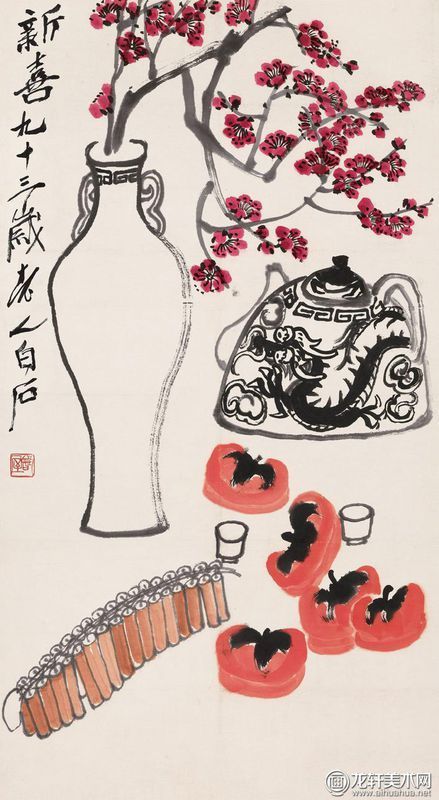 新喜九十三歲老人白石
龙轩美术网
www.aihuahua.net